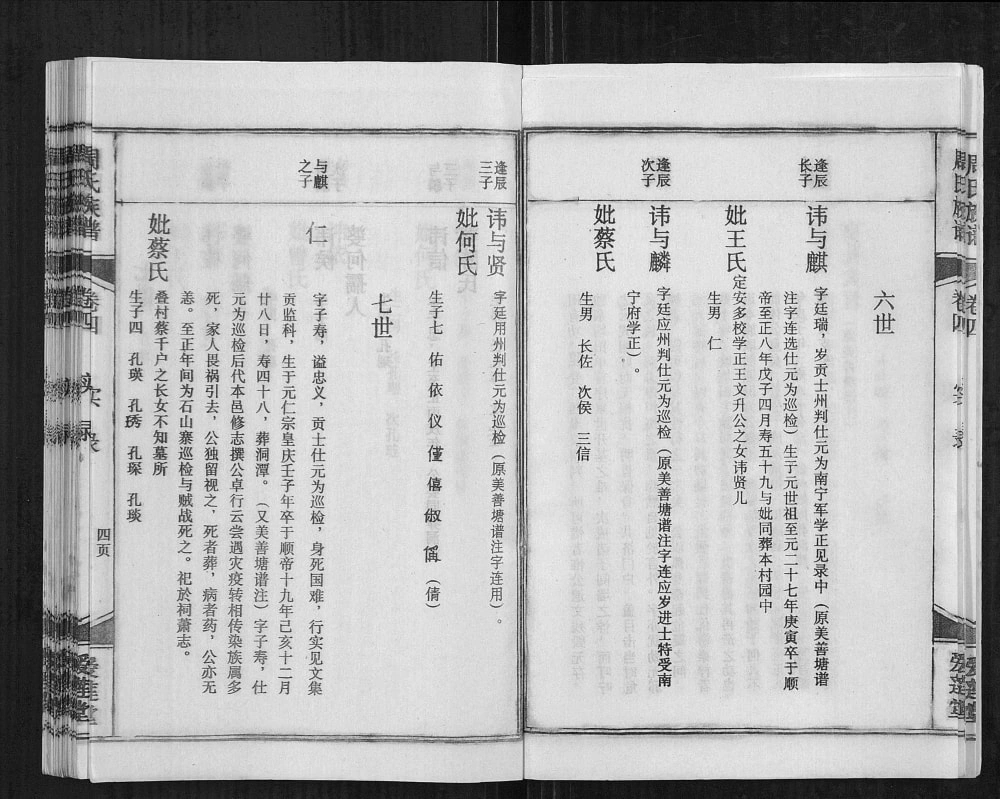 周氏族谱
卷四
爱莲堂
六世
逢辰
长子
讳与麒
字廷瑞，岁贡士州判仕元为南宁军学正见录中（原美善塘谱
注字连选仕元为巡检）生于元世祖至元二十七年庚寅卒于顺
帝至正八年戊子四月寿五十九与妣同葬本村园中
妣王氏
定安多校学正王文升公之女讳贤儿
生男 仁
逢辰
次子
讳与麟
字廷应州判仕元为巡检（原美善塘谱注字连应岁进士特受南
宁府学正）。
妣蔡氏
生男 长佐 次侯 三信
逢辰
三子
讳与贤
字廷用州判仕元为巡检（原美善塘谱注字连用）。
妣何氏
生子七 佑 依 仪 僅 僖 俶 偁（倩）
七世
与麒
之子
仁
字子寿，谥忠义，贡士仕元为巡检，身死国难，行实见文集
贡监科，生于元仁宗皇庆壬子年卒于顺帝十九年己亥十二月
廿八日，寿四十八，葬洞潭。（又美善塘谱注）字子寿，仕
元为巡检后代本邑修志撰公卓行云尝遇灾疫转相传染族属多
死，家人畏祸引去，公独留视之，死者葬，病者药，公亦无
恙。至正年间为石山寨巡检与贼战死之。祀於祠萧志。
妣蔡氏
叠村蔡千户之长女不知墓所
生子四 孔瑛 孔琇 孔琛 孔琰
周氏族谱
卷四
实录
四页
爱莲堂